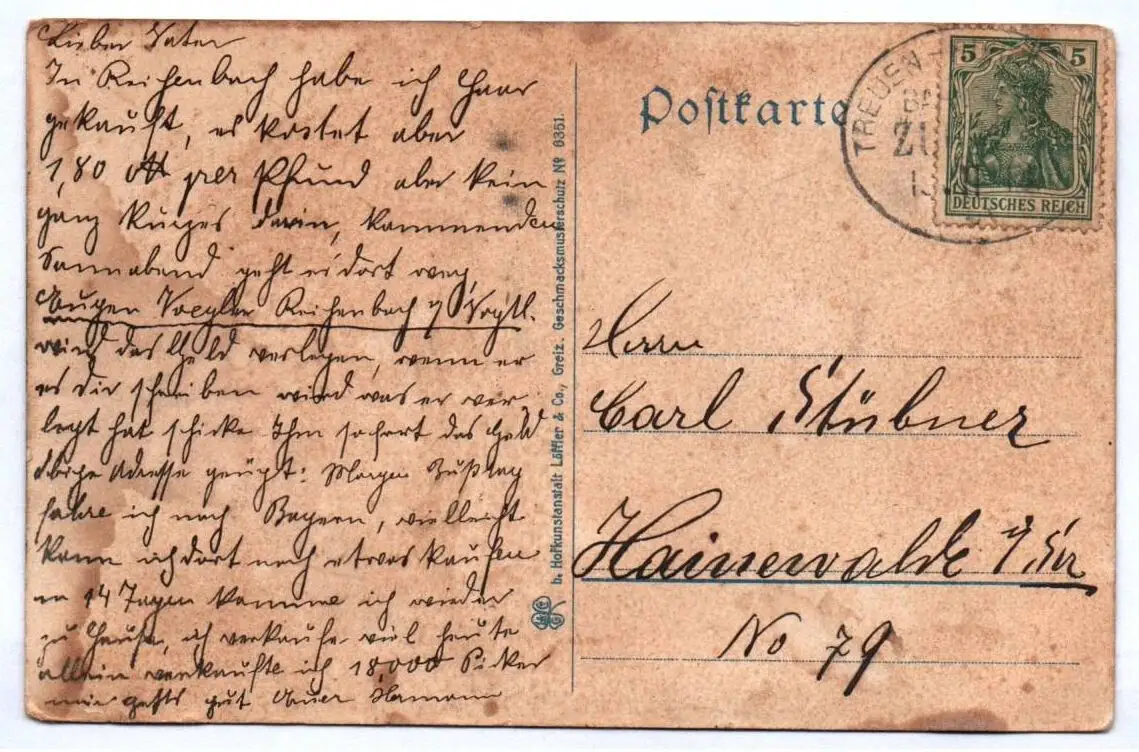 Lieber Vater
In Reichenbach habe ich Haar
gekauft, es kostet aber
1,80 M per Pfund aber kein
ganz kurzes darin, kommenden
Sonnabend geht es dort weg,
Eugen Voegler Reichenbach i/ Vogtl.
wird das Geld verlegen, wenn er
es dir schreiben wird was er ver
legt hat schicke Ihm sofort das Geld
obige Adresse genügt: Morgen Bußtag
fahre ich nach Bayern, vielleicht
kann ich dort noch etwas kaufen
in 14 Tagen komme ich wieder
zu Hause, ich verkaufe viel heute
allein verkaufte ich 18,000
mir gehts gut Euer Hermann
b. Hofkunstanstalt Löffler & Co., Greiz. Geschmacksmusterschutz Nº 6351.
Postkarte
TREUEN
ZU
5 5
DEUTSCHES REICH
Herrn
Carl Stübner
Hainewalde
No 79